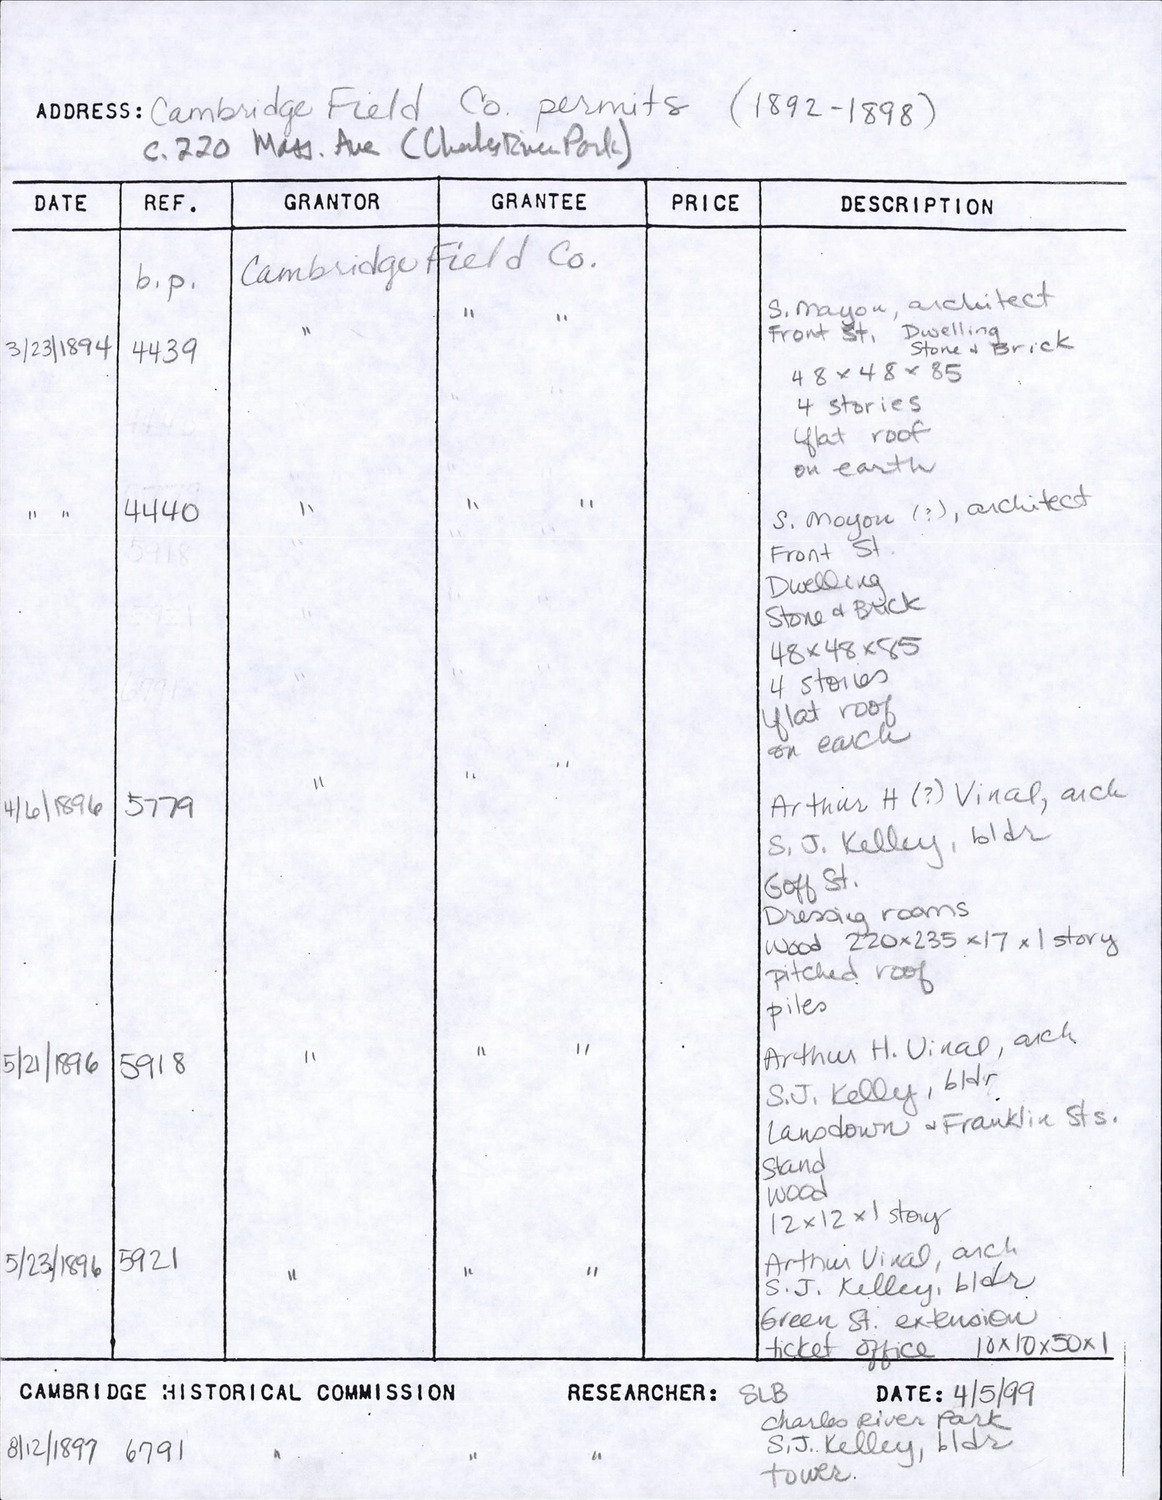 ADDRESS: Cambridge Field Co. permits (1892-1898)
c. 220 Mass. Ave (Charles River Park)
DATE REF. GRANTOR GRANTEE PRICE DESCRIPTION
b.p. Cambridge Field Co.
" " " S. Mayou, architect
Front St. Dwelling
3/23/1894 4439 Stone & Brick
48 x 48 x 85
4 stories
flat roof
on earth
" " 4440 " " " S. Moyou (?), architect
Front St.
Dwelling
Stone & Brick
48x48x85
4 stories
flat roof
on earth
4/6/1896 5779 " " " Arthur H (?) Vinal, arch
S. J. Kelley, bldr
Goff St.
Dressing rooms
Wood 220x235 x17 x 1 story
pitched roof
piles
5/21/1896 5918 " " " Arthur H. Vinal, arch
S.J. Kelley, bldr
Lansdown & Franklin Sts.
Stand
Wood
12x12x1 story
5/23/1896 5921 " " " Arthur Vinal, arch
S.J. Kelley, bldr
Green St. extension
ticket office 10x10x50x1
CAMBRIDGE HISTORICAL COMMISSION RESEARCHER: SLB DATE: 4/5/99
Charles River Park
8/12/1897 6791 " " " S.J. Kelley, bldr
tower.